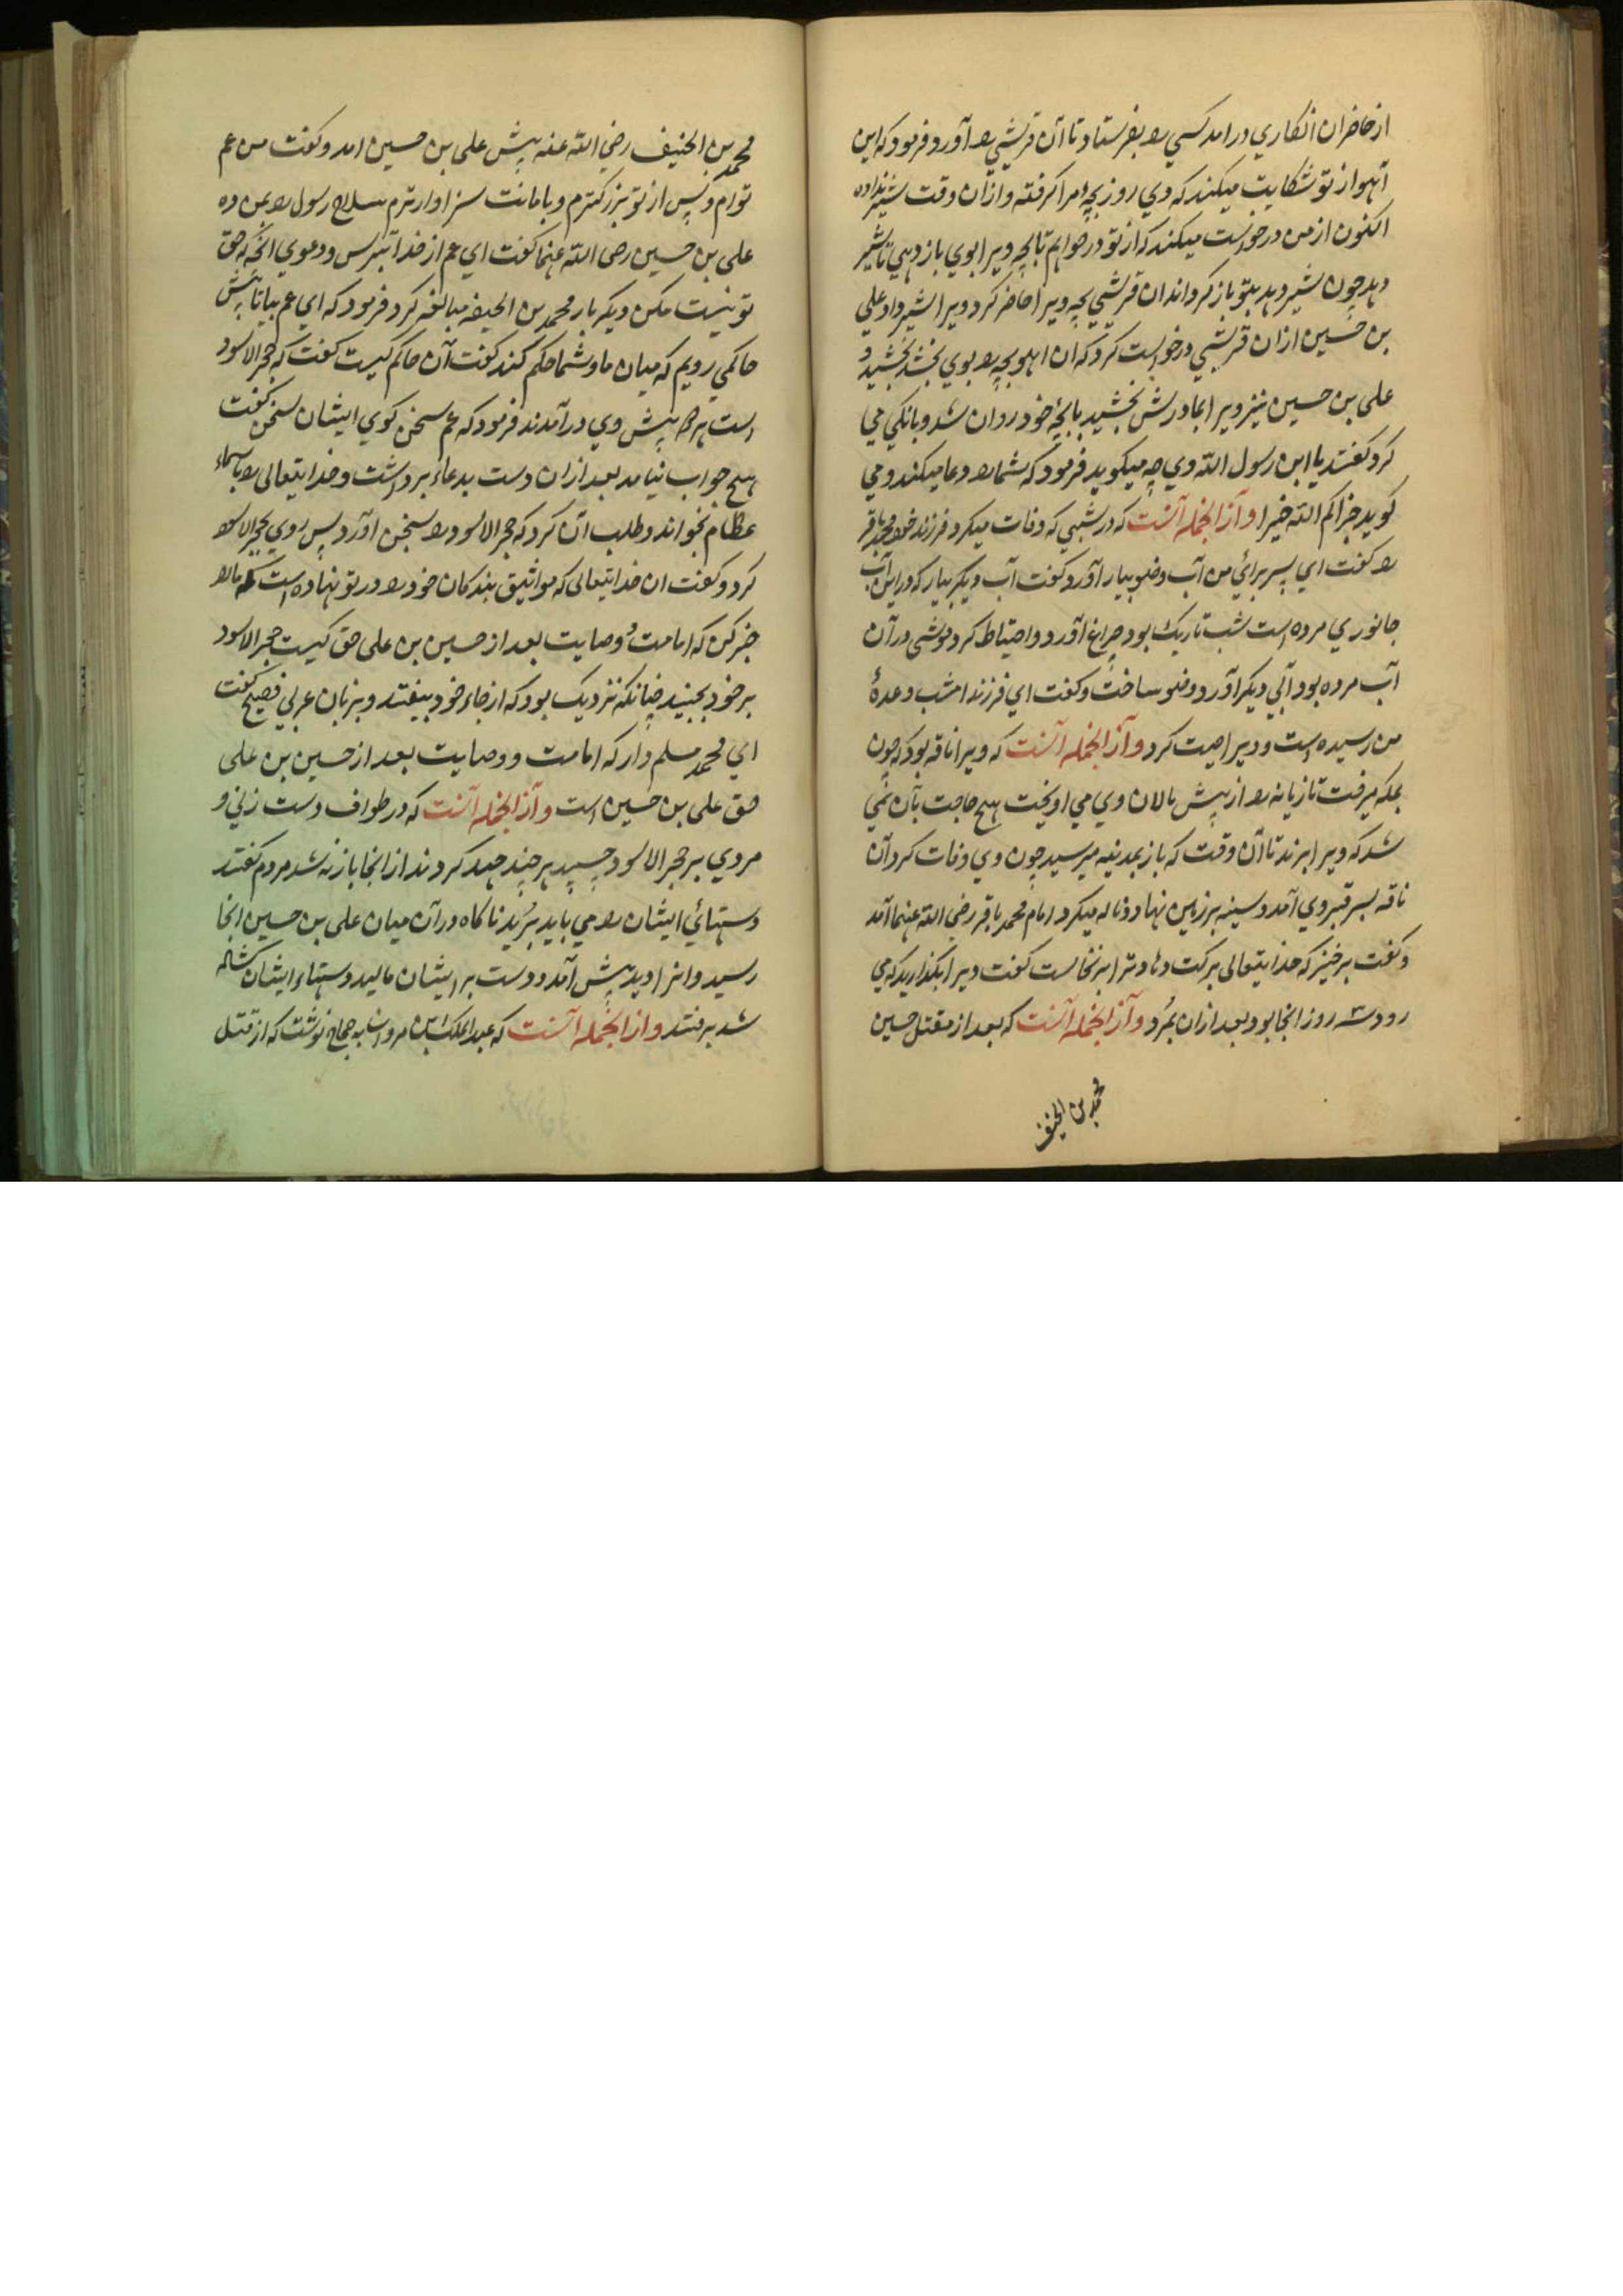 از حاضران انکاری در امد کسی را بفرستاد تا آن قرشی را آورد و فرمود که این
آهو از تو شکایت میکند که دی روز بچهٔ مرا گرفته و ازان وقت شیر نداده
اکنون از من درخواست میکند که از تو درخواهم تا بچه ویرا بوی باز دهی تا شیر
دهد چون شیر دهد بتو باز گرداند ان قرشی بچه ویرا حاضر کرد ویرا شیر داد علی
بن حسین ازان قرشی درخواست کرد که ان اهو بچه را بوی بخشد بخشید و
علی بن حسین نیز ویرا بمادرش بخشید با بچهٔ خود روان شد و بانکی می
کرد گفتند یا ابن رسول الله وی چه میکوید فرمود که شما را دعا میکند و می
کوید جزاکم الله خیرا و آز انجمله آنست که در شبی که وفات میکرد فرزند خود محمد باقر
را گفت ای پسر برائی من آب وضو بیار آورد گفت آب دیکر بیار که در این آب
جانوری مرده است شب تاریک بود چراغ آورد و احتیاط کرد موشی در آن
آب مرده بود آبی دیکر آورد و وضو ساخت و گفت ای فرزند امشب وعدهٔ
من رسیده است و ویرا وصیت کرد و آز انجمله آنست که ویرا ناقه بود که چون
بمکه میرفت تازیانه را از پیش پالان وی می اویخت هیچ حاجت بآن نمی
شد که ویرا بزند تا آن وقت که باز بمدینه میرسید چون وی وفات کرد آن
ناقه بسر قبر وی آمد و سینه بر زمین نهاد و ناله میکرد امام محمد باقر رضی الله عنهما آمد
و گفت برخیز که خدایتعالی برکت دهاد ترا برنخاست گفت ویرا بگذارید که می
رود سه روز انجا بود بعد ازان بمرد و آز انجمله آنست که بعد از مقتل حسین
محمد بن الحنیف
محمد بن الحنیف رضی الله عنه پیش علی بن حسین امد و گفت من عم
توام و بسن از تو بزرکترم و بامانت سزاوارترم سلاح رسول را بمن ده
علی بن حسین رضی الله عنهما گفت ای عم از خدا بترس و دعوی انچه حق
تو نیست مکن دیکر بار محمد بن الحیفه مبالغه کرد فرمود که ای عم بیا تا پیش
حاکمی رویم که میان ما و شما حکم کند گفت آن حاکم کیست گفت که حجر الاسود
است هر دو پیش وی در آمدند فرمود که عم سخن کوی ایشان سخن گفت
هیچ جواب نیامد بعد ازان دست بدعا برداشت و خدایتعالی را باسماء
عظام بخواند و طلب آن کرد که حجر الاسود را بسخن اورد پس روی بحجر الاسود
کرد و گفت ان خدایتعالی که مواثیق بندکان خود را در تو نهاده است که ما را
خبر کن که امامت و وصایت بعد از حسین بن علی حق کیست حجر الاسود
بر خود بجنبید چنانکه نزدیک بود که از جاء خود بیفتد و بزبان عربی فصیح گفت
ای محمد مسلم دار که امامت و وصایت بعد از حسین بن علی
حق علی بن حسین است و آز انجمله آنست که در طواف دست زنی و
مردی بر حجر الاسود چسپید هر چند جهد کردند از انجا باز نه شد مردم گفتند
دستهائی ایشان را می باید برید ناکاه در آن میان علی بن حسین انجا
رسید و انرا دید پیش آمد و دست بر ایشان مالید دستهاء ایشان کشاده
شد برفتند و از انجمله آنست که عبد الملک بن مروان به حجاج نوشت که از قتل